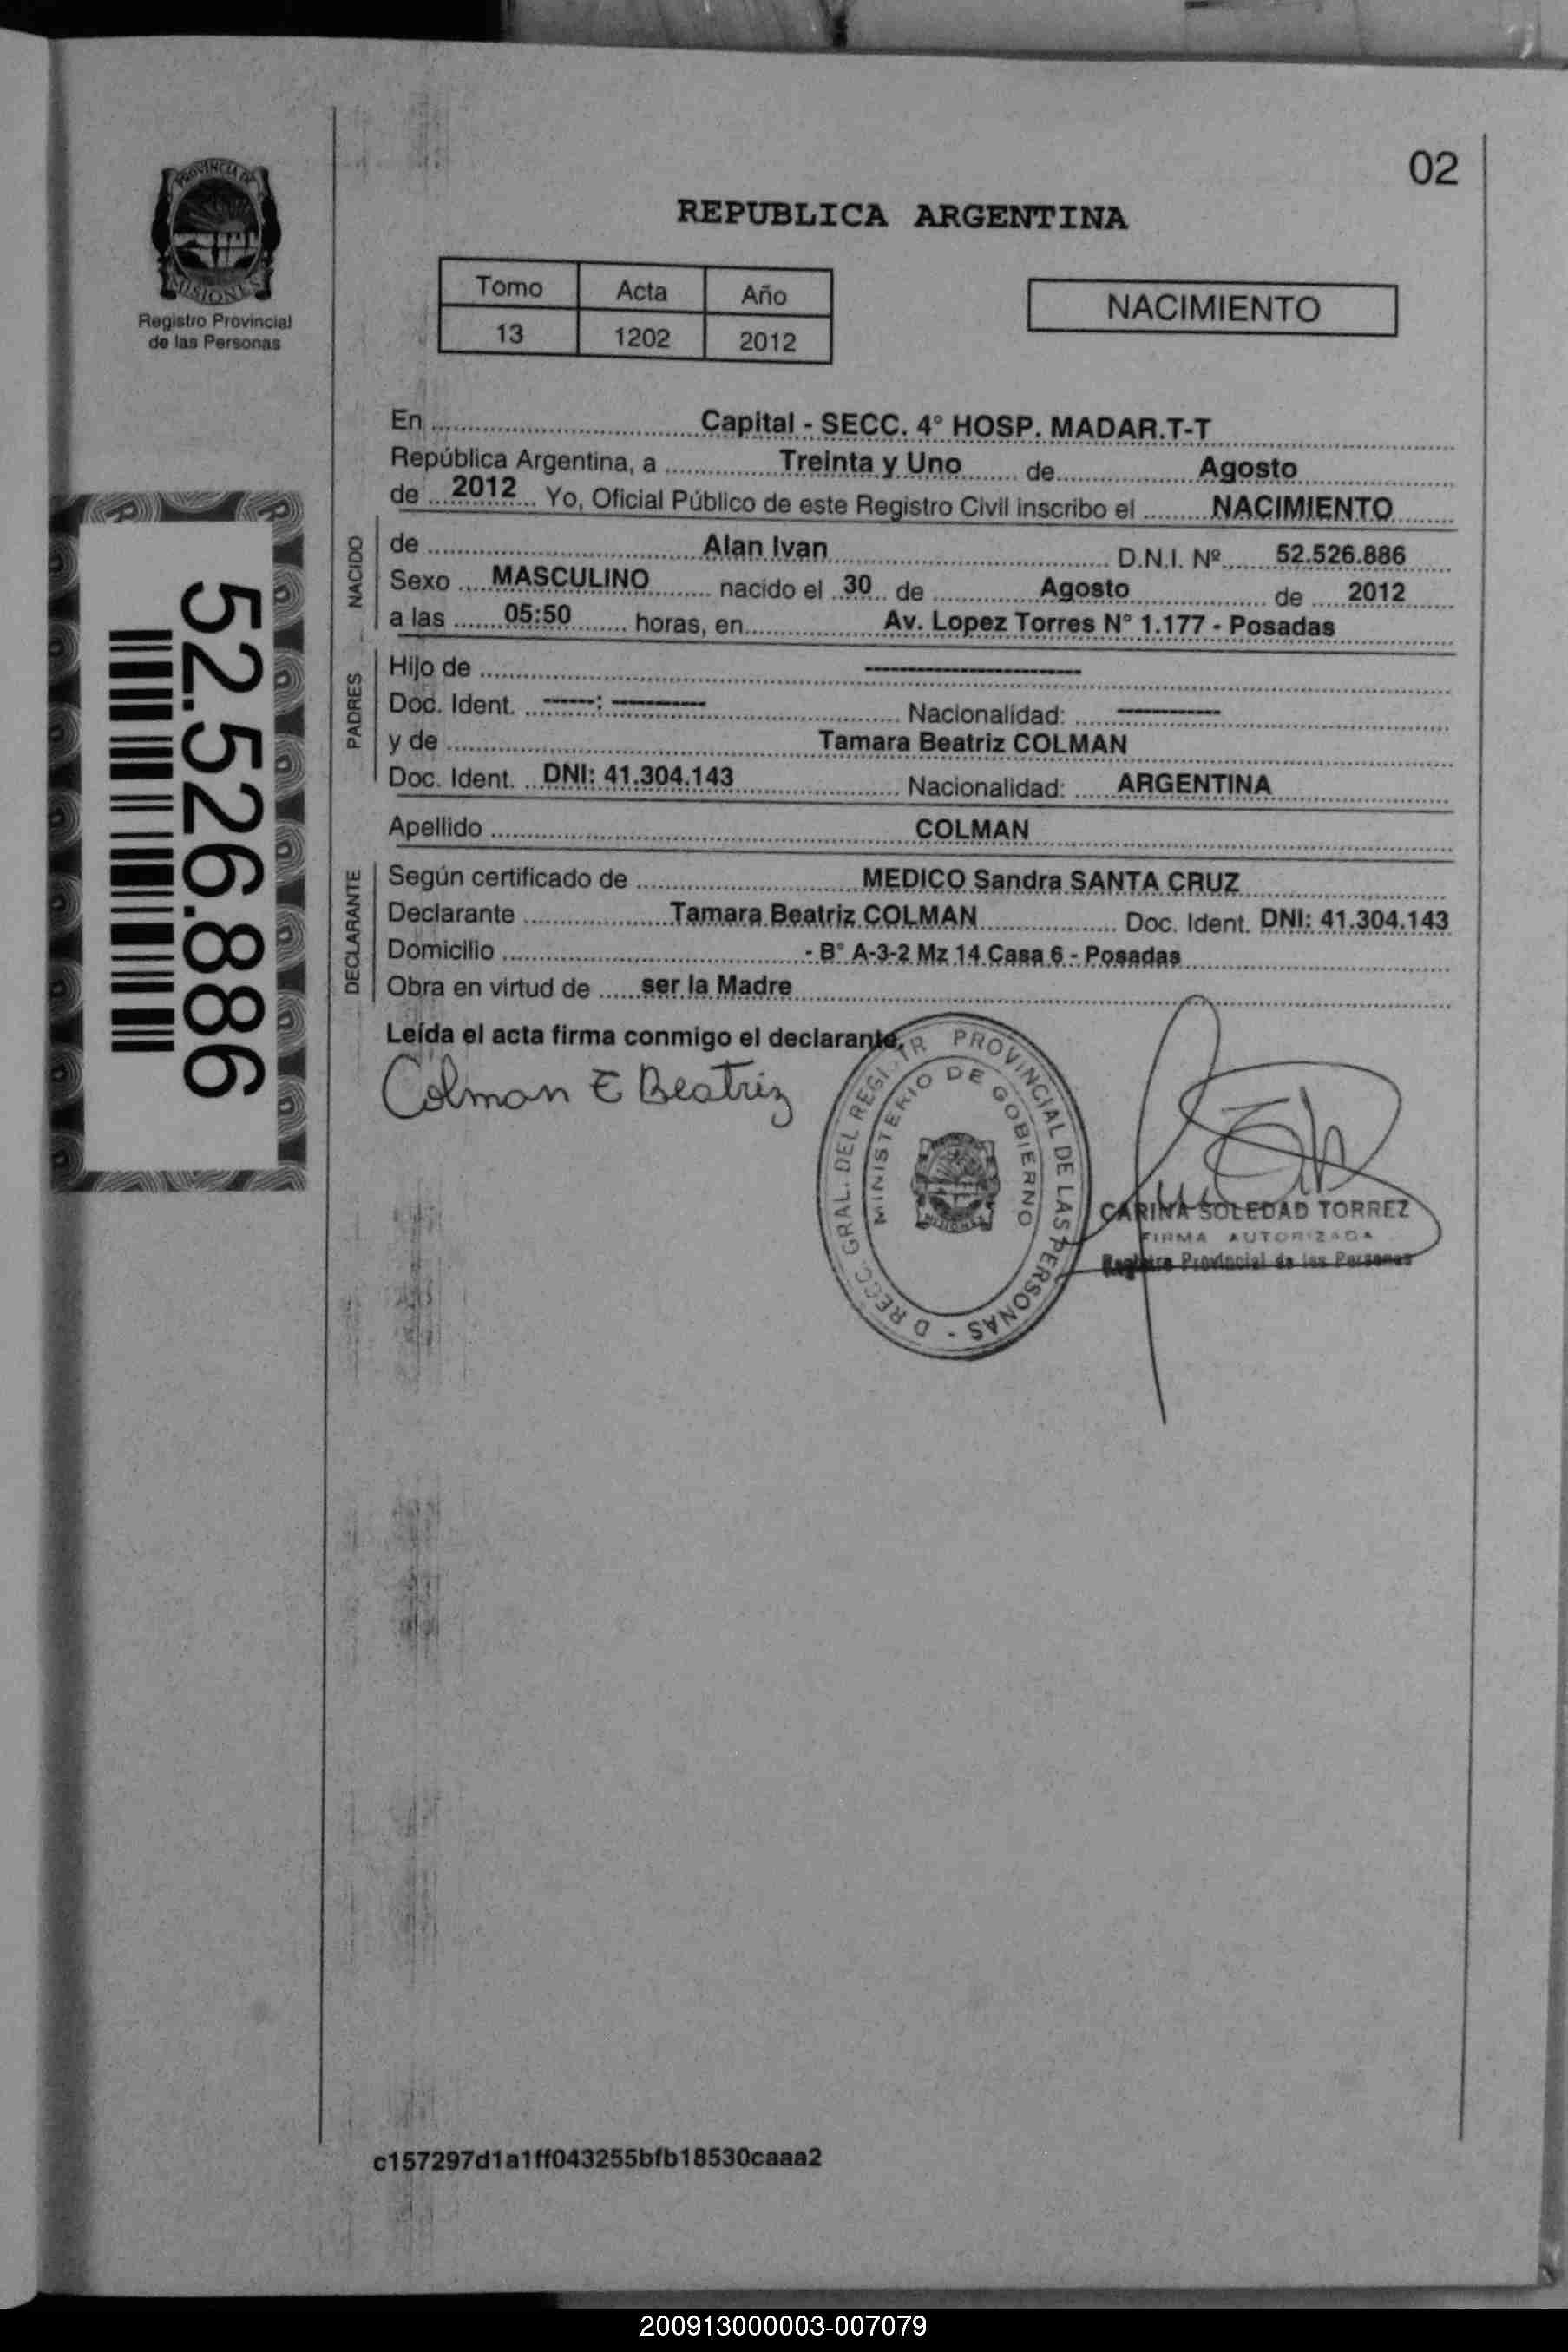 02
PROVINCIA DE
MISIONES
Registro Provincial
de las Personas
REPUBLICA ARGENTINA
Tomo Acta Año
13 1202 2012
NACIMIENTO
En Capital - SECC. 4° HOSP. MADAR.T-T
República Argentina, a Treinta y Uno de Agosto
de 2012 Yo, Oficial Público de este Registro Civil inscribo el NACIMIENTO
NACIDO
de Alan Ivan D.N.I. Nº 52.526.886
Sexo MASCULINO nacido el 30 de Agosto de 2012
a las 05:50 horas, en Av. Lopez Torres N° 1.177 - Posadas
PADRES
Hijo de --------------------
Doc. Ident. -----: --------- Nacionalidad: ----------
y de Tamara Beatriz COLMAN
Doc. Ident. DNI: 41.304.143 Nacionalidad: ARGENTINA
Apellido COLMAN
DECLARANTE
Según certificado de MEDICO Sandra SANTA CRUZ
Declarante Tamara Beatriz COLMAN Doc. Ident. DNI: 41.304.143
Domicilio - B° A-3-2 Mz 14 Casa 6 - Posadas
Obra en virtud de ser la Madre
Leída el acta firma conmigo el declarante.
Colman T Beatriz
D RECC. GRAL. DEL REGISTR PROVINCIAL DE LAS PERSONAS -
MINISTERIO DE GOBIERNO
CARINA SOLEDAD TORREZ
FIRMA AUTORIZADA
Registro Provincial de las Personas
52.526.886
c157297d1a1ff043255bfb18530caaa2
200913000003-007079